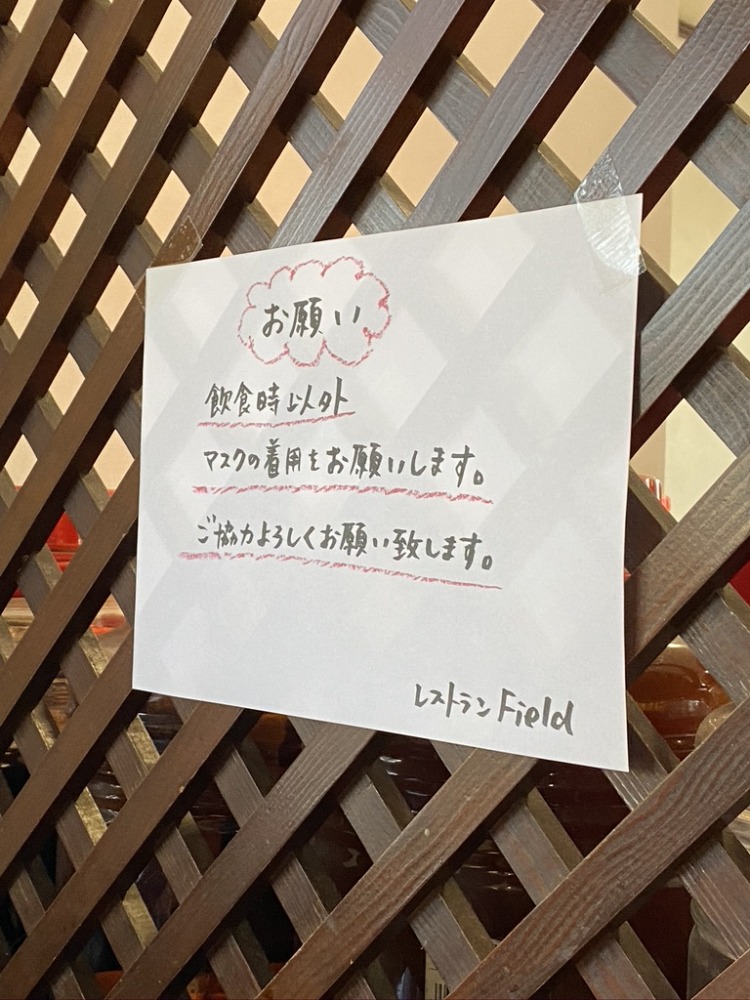 お願い
飲食時以外
マスクの着用をお願いします。
ご協力よろしくお願い致します。
レストラン Field